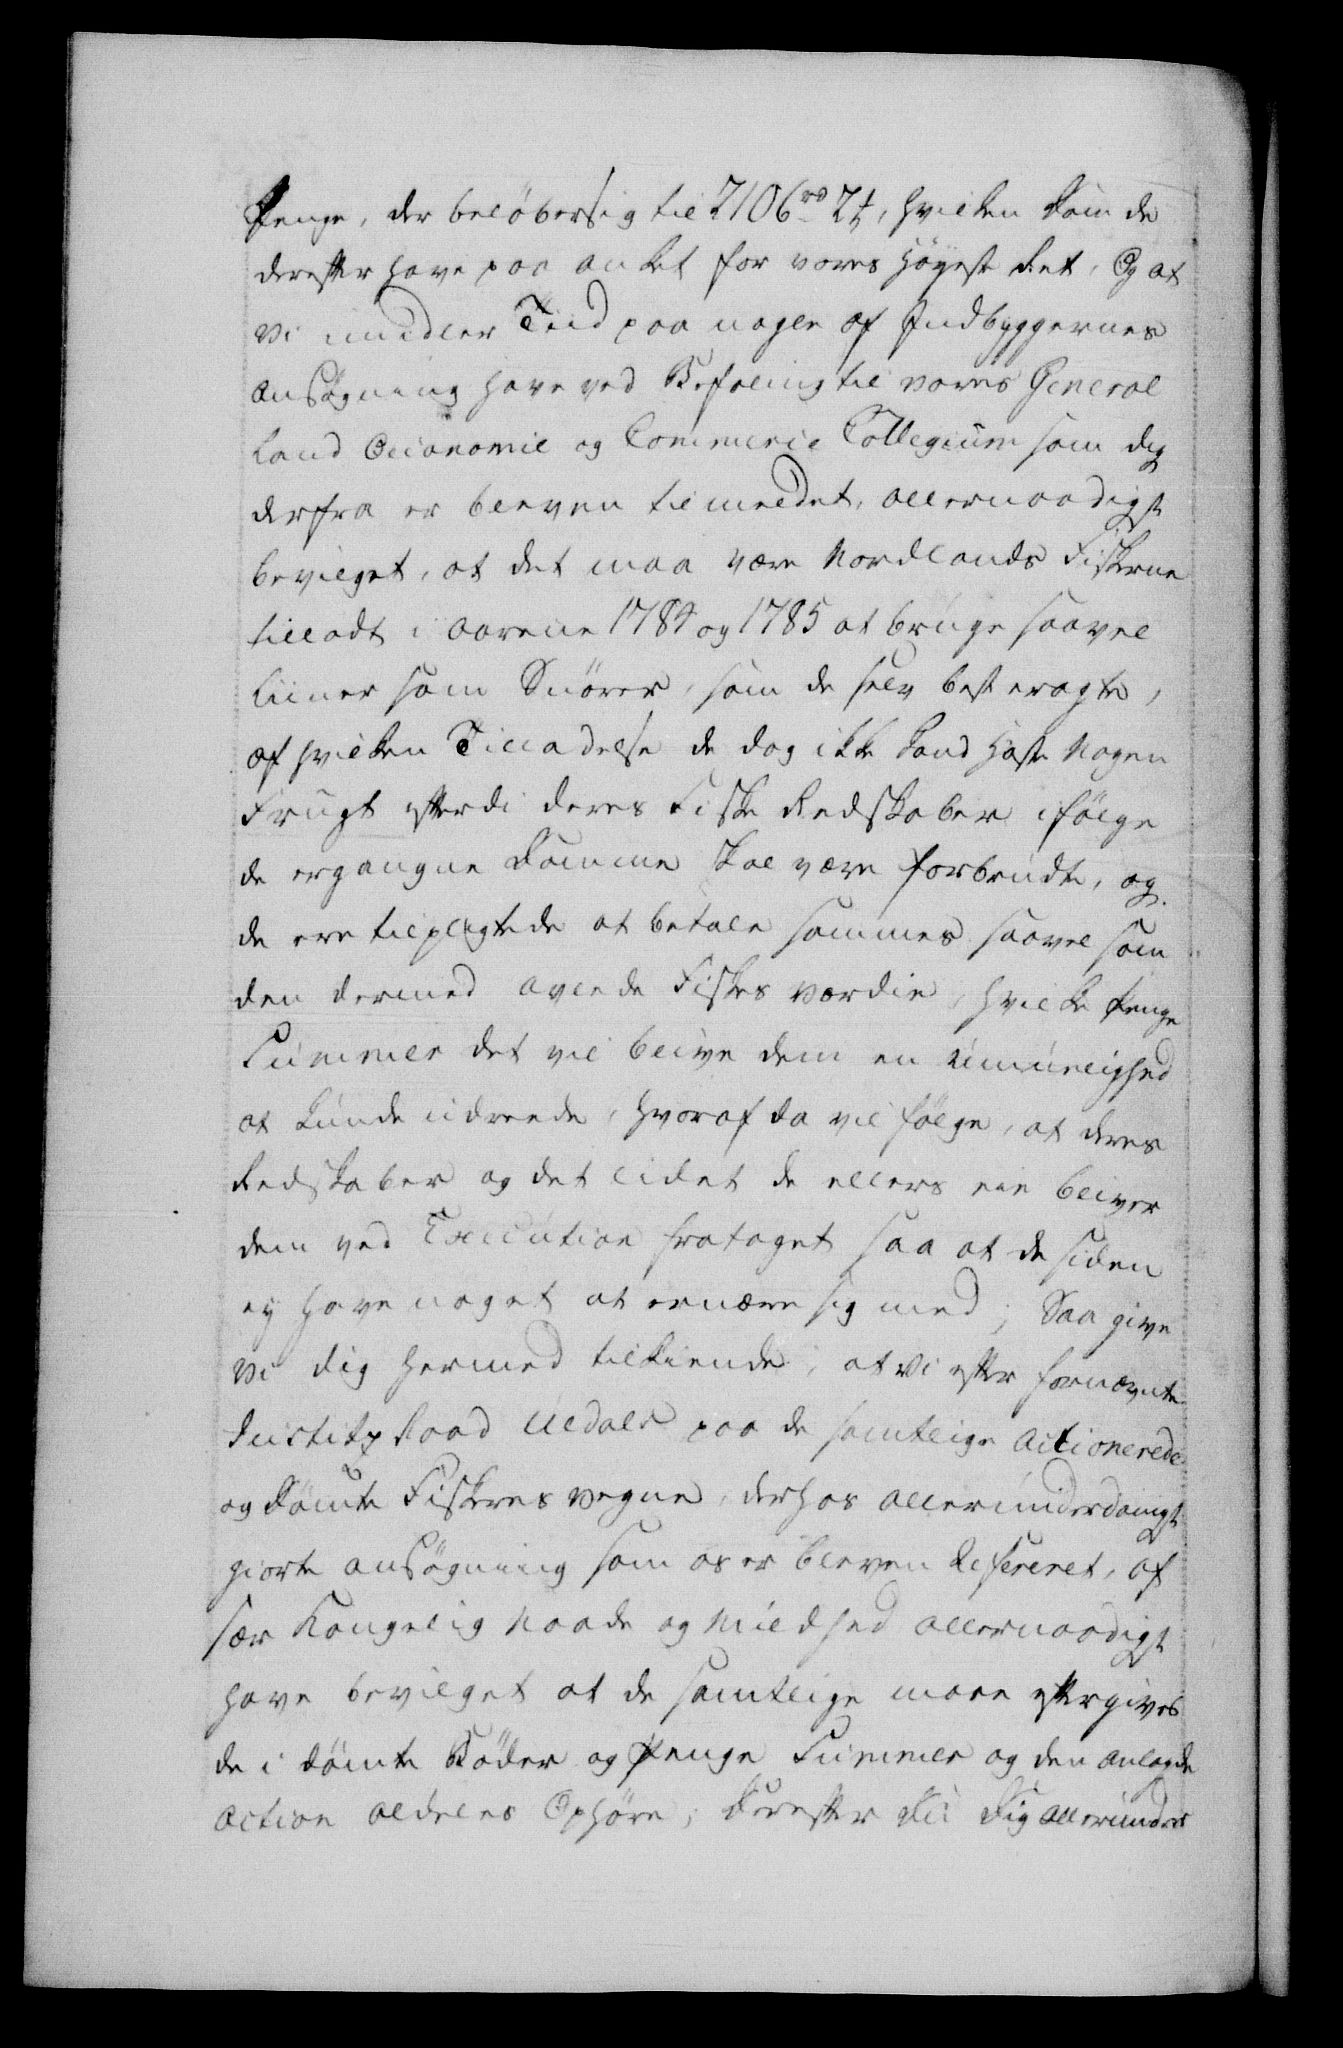 Penge, der belöber sig til 2106 rd 2 ß, hvilken Dom de
derefter have paa anket for vores Höyeste Ret, Og at
Vi imidler Tiid paa nogle af Indbyggernes
Ansögning have ved Befaling til vores General
Land Oeconomie og Commerce Collegium som dig
derfra er bleven tilmeldet, allernaadigst
bevilget, at det maa være Nordlands Fiskerne
tilladt i Aarene 1784 og 1785 at bruge saavel
Liiner som Snörer, som de selv best eragte,
af hvilken Tilladelse de dog ikke kand höste Nogen
Frugt efterdi deres Fiske Redskaber ifölge
de ergangne Domme skal være forbrudte, og
de ere tilpligtede at betale sammes saavel som
den dermed avlede Fiskes Værdie, hvilke Penge
Summer det vil blive dem en Umuelighed
at kunde udreede, hvoraf da vil fölge, at deres
Redskaber og det lidet de ellers eie bliver
dem ved Execution frataget saa at de siden
ey have noget at ernære sig med; Saa give
Vi dig hermed tilkiende, at Vi efter fornævnte
Justitz Raad Uldals paa de samtlige Actionerede
og dömte Fiskeres Vegne, derhos allerunderdanigst
giorte Ansögning som os er bleven Refereret, af
sær Kongelig Naade og Mildhed allernaadigst
have bevilget at de samtlige maae eftergives
de idömte Böder og Penge Summer og den anlagde
Action aldeles Ophöre; Derefter Du Dig allerunder